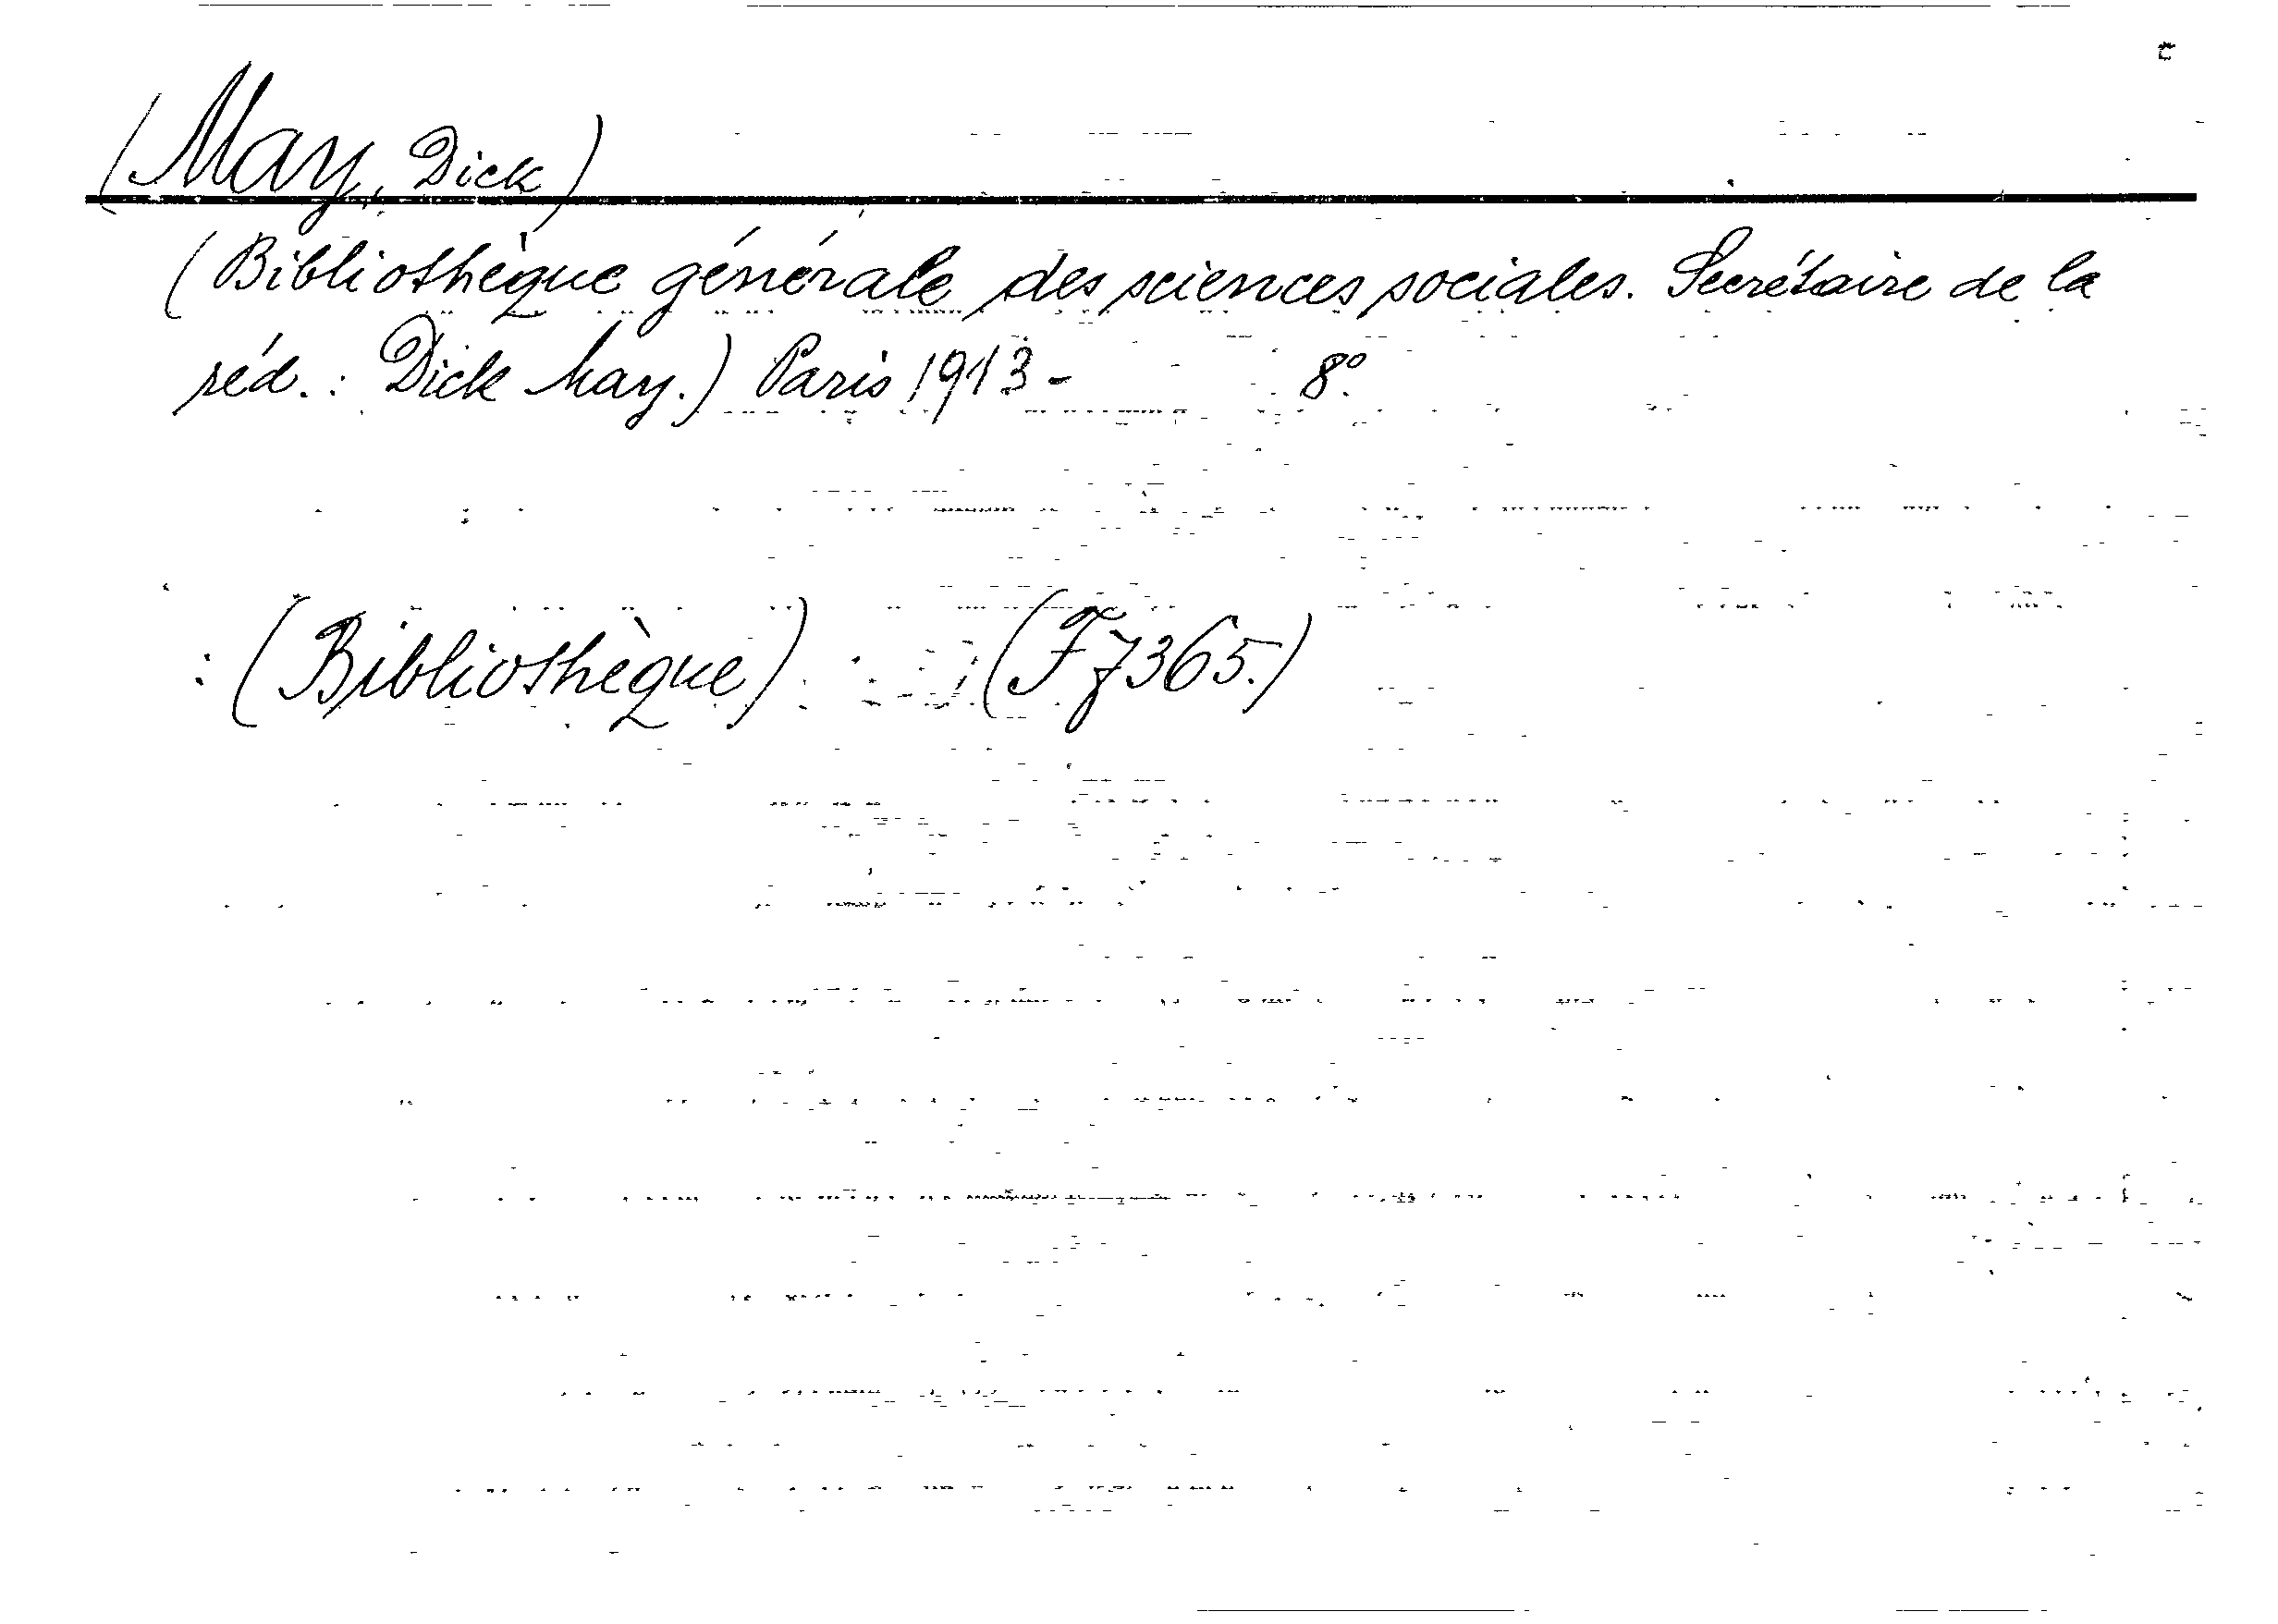 (May, Dick)
(Bibliothèque générale des sciences sociales. Secrétaire de la
réd.: Dick May.) Paris 1913- 8º.
: (Bibliothèque) (F7365.)